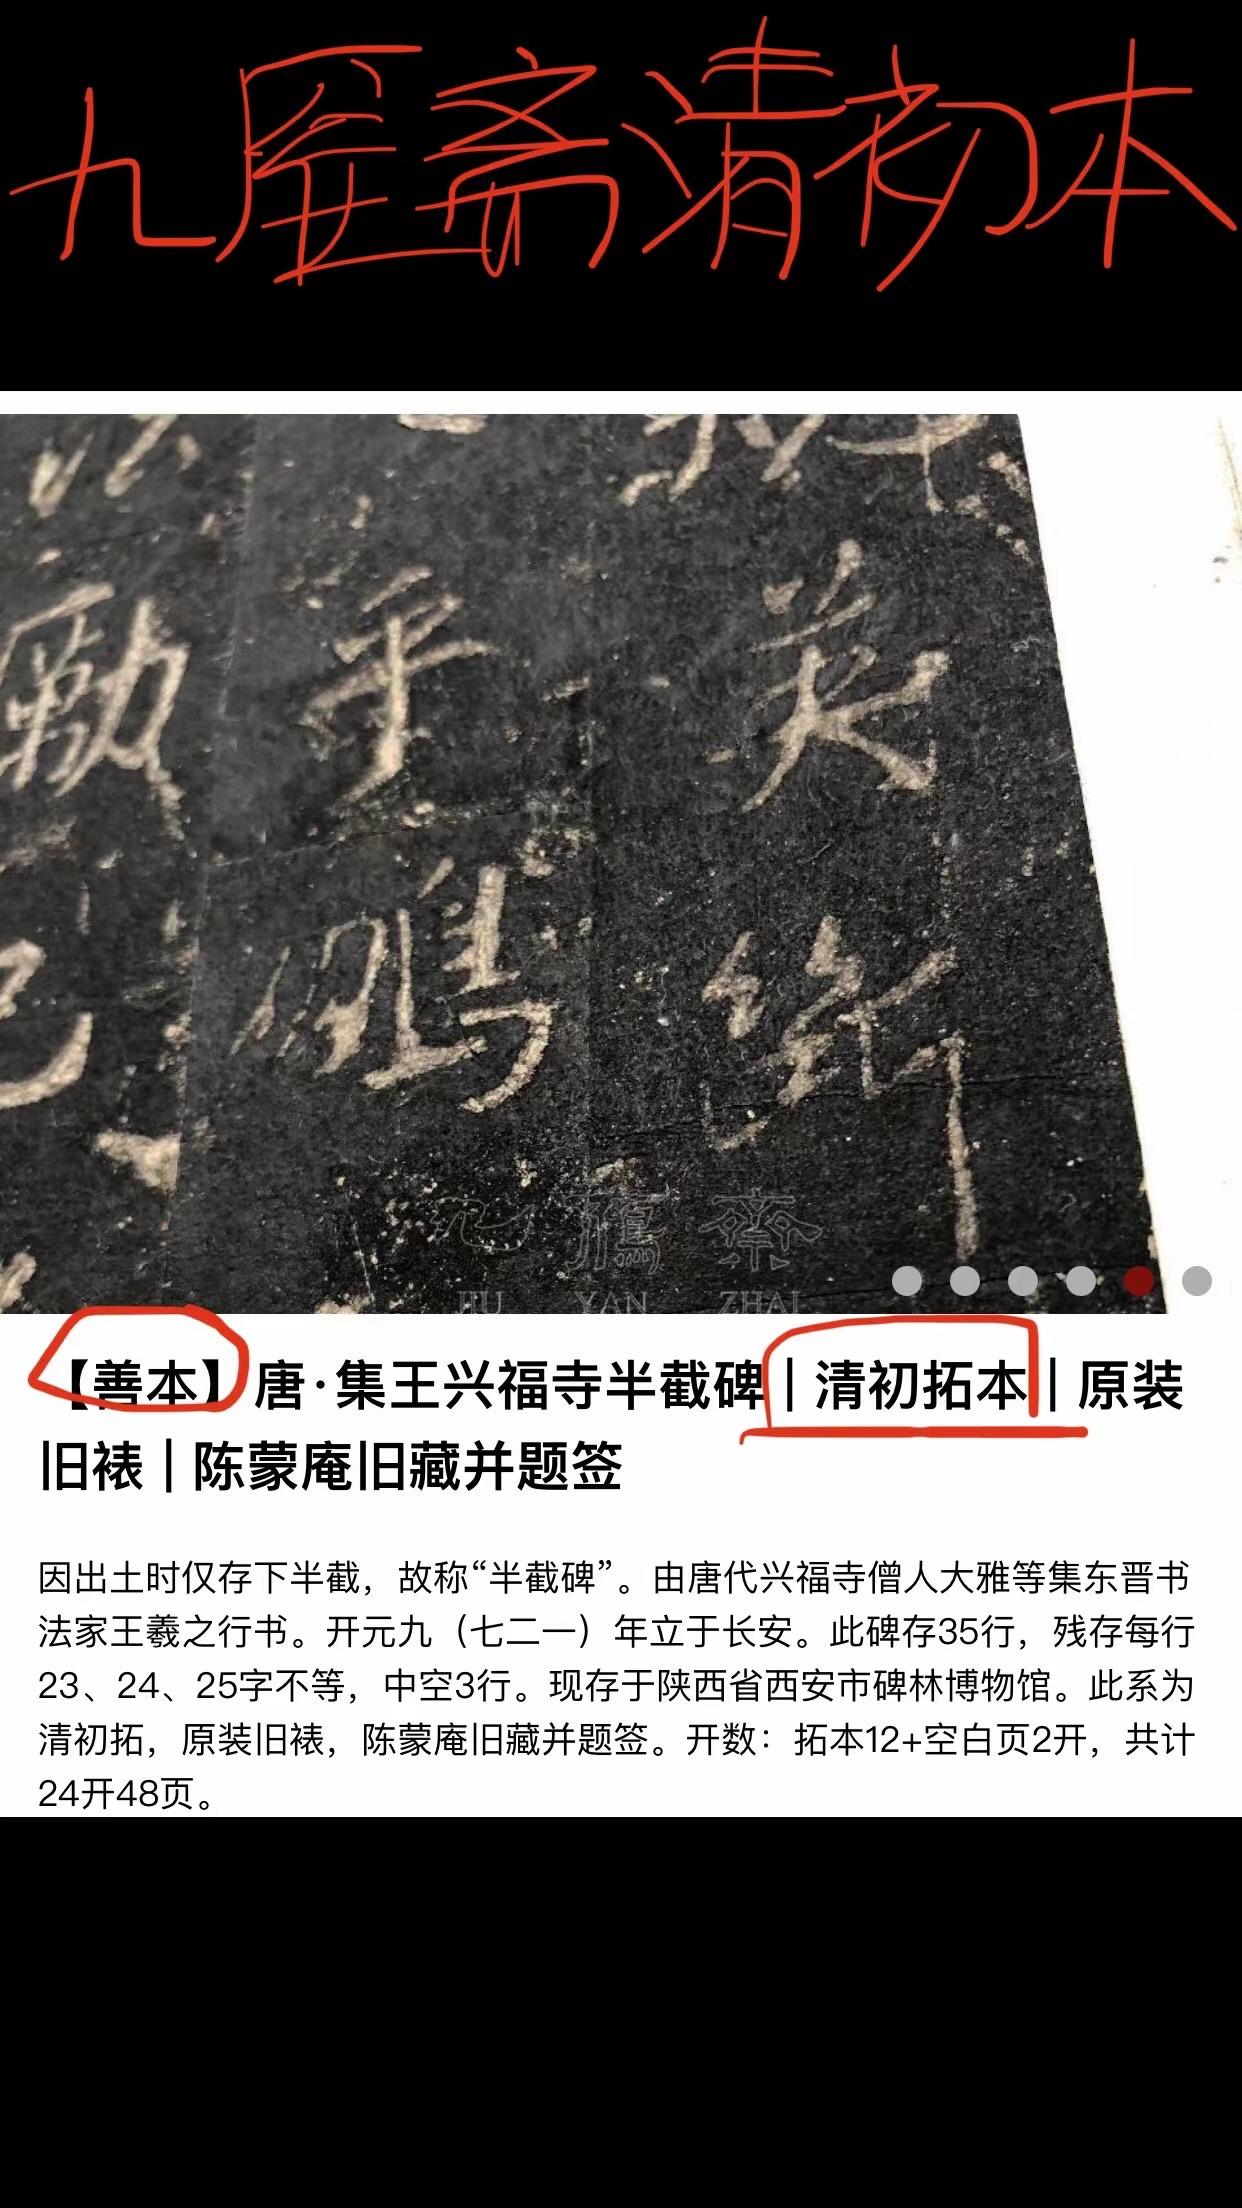 九雁斋清初本
英
平
勵
斷
鵬
九鴈齋
JIU YAN ZHAI
【善本】唐·集王兴福寺半截碑｜清初拓本｜原装
旧裱｜陈蒙庵旧藏并题签
因出土时仅存下半截，故称“半截碑”。由唐代兴福寺僧人大雅等集东晋书
法家王羲之行书。开元九（七二一）年立于长安。此碑存35行，残存每行
23、24、25字不等，中空3行。现存于陕西省西安市碑林博物馆。此系为
清初拓，原装旧裱，陈蒙庵旧藏并题签。开数：拓本12+空白页2开，共计
24开48页。